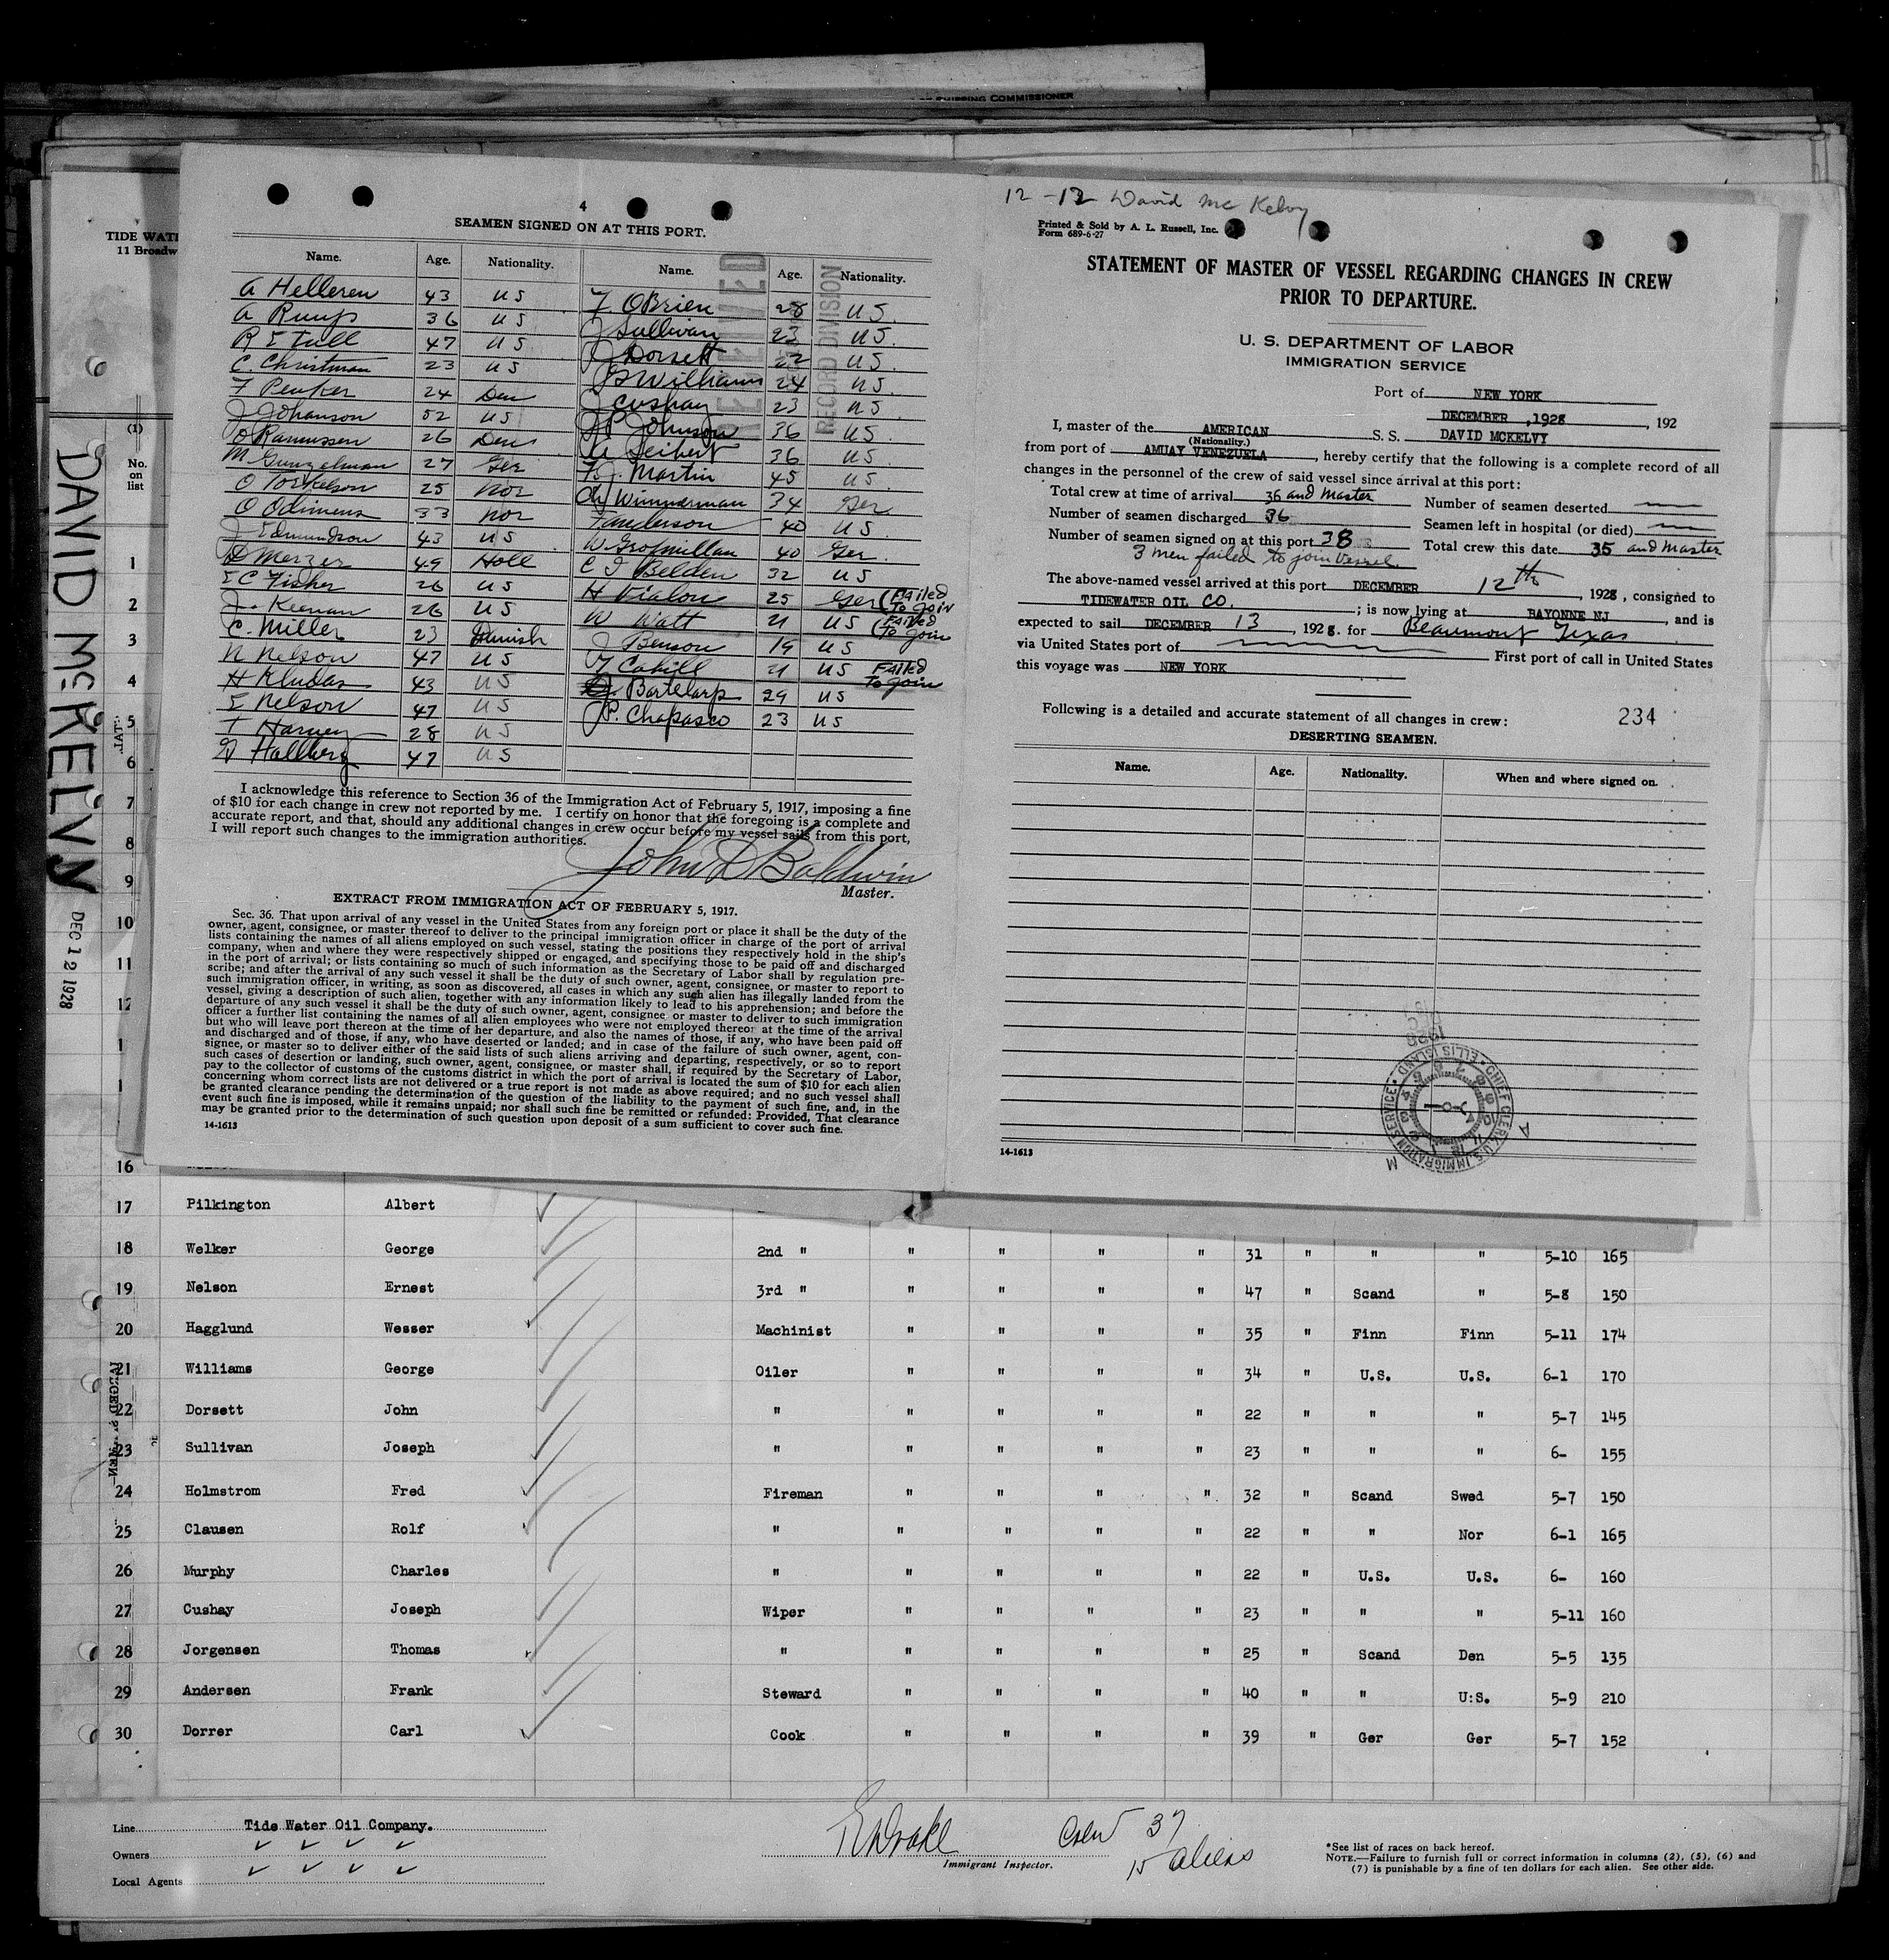 OF SHIPPING COMMISSIONER
TIDE WAT
11 Broadw
(1)
No.
on
list
DAVID McKELVY
DEC 12 1928
4
SEAMEN SIGNED ON AT THIS PORT.
Name. Age. Nationality. Name. Age. Nationality.
RECEIVED
RECORD DIVISION
A Helleren 43 US F. OBrien 28 U.S.
A Rumps 36 US J Sullivan 23 U.S.
R E Tull 47 US J Dorsett 22 U.S.
C. Christman 23 US G Williams 24 U.S.
F Peuker 24 Den J Cushay 23 U.S.
J Johanson 52 US J P Johnson 36 U.S.
O Rasmussen 26 Den A Seibert 36 U.S.
M Gunzelman 27 Ger J. Martin 45 U.S.
O Torkelson 25 Nor Wimmerman 34 Ger
O Odimens 33 Nor F anderson 40 U.S.
J Edmundson 43 US W Grofmillan 40 Ger.
D Merzer 49 Holl C I Belden 32 US
E C Fisher 26 US H Vialon 25 Ger (Failed To Join
J. Keenan 26 US W Watt 21 US (Failed To Join
C. Miller 23 Danish J Benson 19 US
N Nelson 47 US F Cahill 21 US Failed To Join
H Kludas 43 US J. Bartelarp 29 US
E Nelson 47 US P. Chapasco 23 US
T Harvey 28 US
G Hallberg 47 US
I acknowledge this reference to Section 36 of the Immigration Act of February 5, 1917, imposing a fine
of $10 for each change in crew not reported by me. I certify on honor that the foregoing is a complete and
accurate report, and that, should any additional changes in crew occur before my vessel sails from this port,
I will report such changes to the immigration authorities.
John D Baldwin
Master.
EXTRACT FROM IMMIGRATION ACT OF FEBRUARY 5, 1917.
Sec. 36. That upon arrival of any vessel in the United States from any foreign port or place it shall be the duty of the
owner, agent, consignee, or master thereof to deliver to the principal immigration officer in charge of the port of arrival
lists containing the names of all aliens employed on such vessel, stating the positions they respectively hold in the ship's
company, when and where they were respectively shipped or engaged, and specifying those to be paid off and discharged
in the port of arrival; or lists containing so much of such information as the Secretary of Labor shall by regulation pre-
scribe; and after the arrival of any such vessel it shall be the duty of such owner, agent, consignee, or master to report to
such immigration officer, in writing, as soon as discovered, all cases in which any such alien has illegally landed from the
vessel, giving a description of such alien, together with any information likely to lead to his apprehension; and before the
departure of any such vessel it shall be the duty of such owner, agent, consignee, or master to deliver to such immigration
officer a further list containing the names of all alien employees who were not employed thereon at the time of the arrival
but who will leave port thereon at the time of her departure, and also the names of those, if any, who have been paid off
and discharged and of those, if any, who have deserted or landed; and in case of the failure of such owner, agent, con-
signee, or master so to deliver either of the said lists of such aliens arriving and departing, respectively, or so to report
such cases of desertion or landing, such owner, agent, consignee, or master shall, if required by the Secretary of Labor,
pay to the collector of customs of the customs district in which the port of arrival is located the sum of $10 for each alien
concerning whom correct lists are not delivered or a true report is not made as above required; and no such vessel shall
be granted clearance pending the determination of the question of the liability to the payment of such fine, and, in the
event such fine is imposed, while it remains unpaid; nor shall such fine be remitted or refunded: Provided, That clearance
may be granted prior to the determination of such question upon deposit of a sum sufficient to cover such fine.
14-1613
12 - 12 David Mc Kelvy
Printed & Sold by A. L. Russell, Inc.
Form 689-6-27
STATEMENT OF MASTER OF VESSEL REGARDING CHANGES IN CREW
PRIOR TO DEPARTURE.
U. S. DEPARTMENT OF LABOR
IMMIGRATION SERVICE
Port of NEW YORK
DECEMBER ,1928, 192
I, master of the AMERICAN S. S. DAVID MCKELVY
(Nationality.)
from port of AMUAY VENEZUELA, hereby certify that the following is a complete record of all
changes in the personnel of the crew of said vessel since arrival at this port:
Total crew at time of arrival 36 and Master Number of seamen deserted
Number of seamen discharged 36 Seamen left in hospital (or died)
Number of seamen signed on at this port 38 Total crew this date 35 and Master
3 men failed to join Vessel
The above-named vessel arrived at this port DECEMBER 12th, 1928, consigned to
TIDEWATER OIL CO.; is now lying at BAYONNE NJ, and is
expected to sail DECEMBER 13, 1928. for Beaumont Texas
via United States port of First port of call in United States
this voyage was NEW YORK
Following is a detailed and accurate statement of all changes in crew: 234
DESERTING SEAMEN.
Name. Age. Nationality. When and where signed on.
CHIEF CLERK, U.S. IMMIGRATION SERVICE · ELLIS ISLAND
14-1613
1
2
3
4
5
6
7
8
9
10
11
12
16
17 Pilkington Albert
18 Welker George 2nd " " " " " 31 " " " 5-10 165
19 Nelson Ernest 3rd " " " " " 47 " Scand " 5-8 150
20 Hagglund Wesser Machinist " " " " 35 " Finn Finn 5-11 174
21 Williams George Oiler " " " " 34 " U.S. U.S. 6-1 170
22 Dorsett John " " " " " 22 " " " 5-7 145
23 Sullivan Joseph " " " " " 23 " " " 6- 155
24 Holmstrom Fred Fireman " " " " 32 " Scand Swed 5-7 150
25 Clausen Rolf " " " " " 22 " " Nor 6-1 165
26 Murphy Charles " " " " " 22 " U.S. U.S. 6- 160
27 Cushay Joseph Wiper " " " " 23 " " " 5-11 160
28 Jorgensen Thomas " " " " " 25 " Scand Den 5-5 135
29 Andersen Frank Steward " " " " 40 " " U:S. 5-9 210
30 Dorrer Carl Cook " " " " 39 " Ger Ger 5-7 152
Line Tide Water Oil Company.
Owners
Local Agents
R Drake
Immigrant Inspector.
Crew 37
15 aliens
*See list of races on back hereof.
NOTE.—Failure to furnish full or correct information in columns (2), (5), (6) and
(7) is punishable by a fine of ten dollars for each alien. See other side.